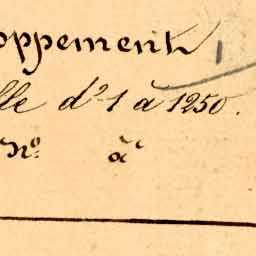 oppement
lle d' 1 à 1250.
N°. à